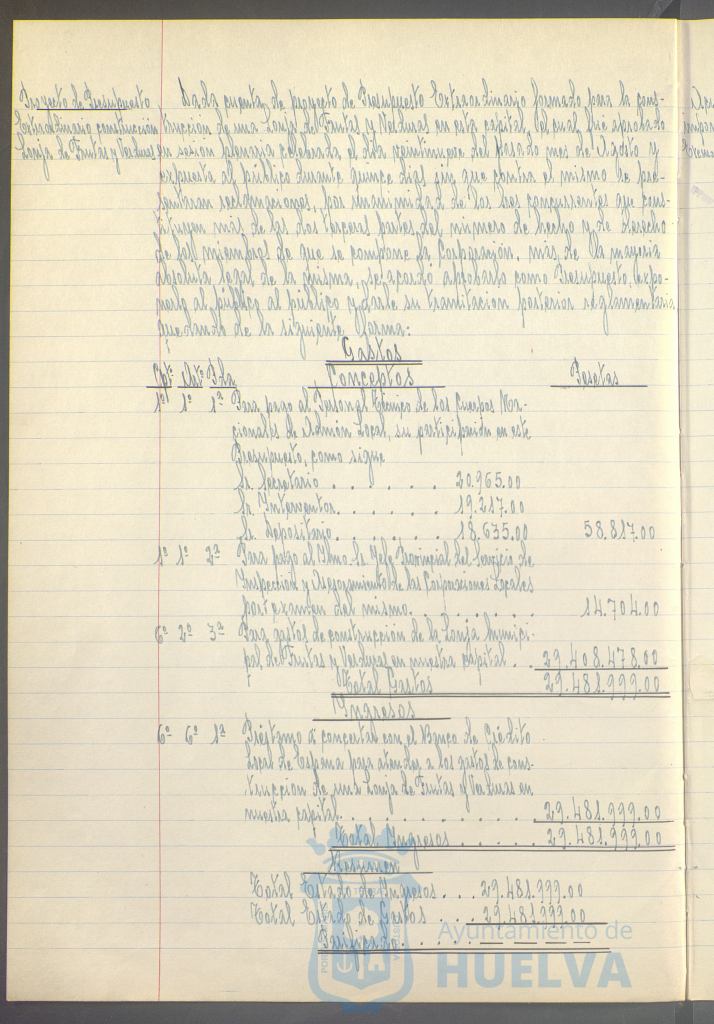 Proyecto de Presupuesto
Extraordinario construcción
Lonja de Frutas y Verduras
Dada cuenta de proyecto de Presupuesto Extraordinario formado para la cons-
trucción de una Lonja de Frutas y Verduras en esta capital, el cual fue aprobado
en sesión plenaria celebrada el día veintinueve del pasado mes de Agosto y
expuesto al público durante quince días sin que contra el mismo se pre-
sentaran reclamaciones, por unanimidad de los Sres concurrentes que cons-
tituyen más de las dos terceras partes del número de hecho y de derecho
de los miembros de que se compone la Corporación, más de la mayoría
absoluta legal de la misma, se acordó aprobarlo como Presupuesto, expo-
nerlo al público al público y darle su tramitación posterior reglamentaria
quedando de la siguiente forma:
Gastos
Cptº Artº Pda Conceptos Pesetas
1º 1º 1ª Para pago al Personal Técnico de los Cuerpos Na-
cionales de Admón Local, su participación en este
Presupuesto, como sigue
Sr. Secretario . . . . . . 20.965.00
Sr. Interventor . . . . . . 19.217.00
Sr. Depositario . . . . . . 18.635.00 58.817.00
1º 1º 2ª Para pago al Ilmo. Sr. Jefe Provincial del Servicio de
Inspección y Asesoramiento de las Corporaciones Locales
por examen del mismo. . . . . . . . . 14.704.00
6º 2º 3ª Para gastos de construcción de la Lonja Munici-
pal de Frutas y Verduras en nuestra capital . . 29.408.478.00
Total Gastos 29.481.999.00
Ingresos
6º 6º 1ª Préstamo a concertar con el Banco de Crédito
Local de España para atender a los gastos de cons-
trucción de una Lonja de Frutas y Verduras en
nuestra capital. . . . . . . . . . . . 29.481.999.00
Total Ingresos . . . . 29.481.999.00
Resumen
Total Estado de Ingresos . . . 29.481.999.00
Total Estado de Gastos . . . 29.481.999.00
. . . . — — — —
Ayuntamiento de
HUELVA